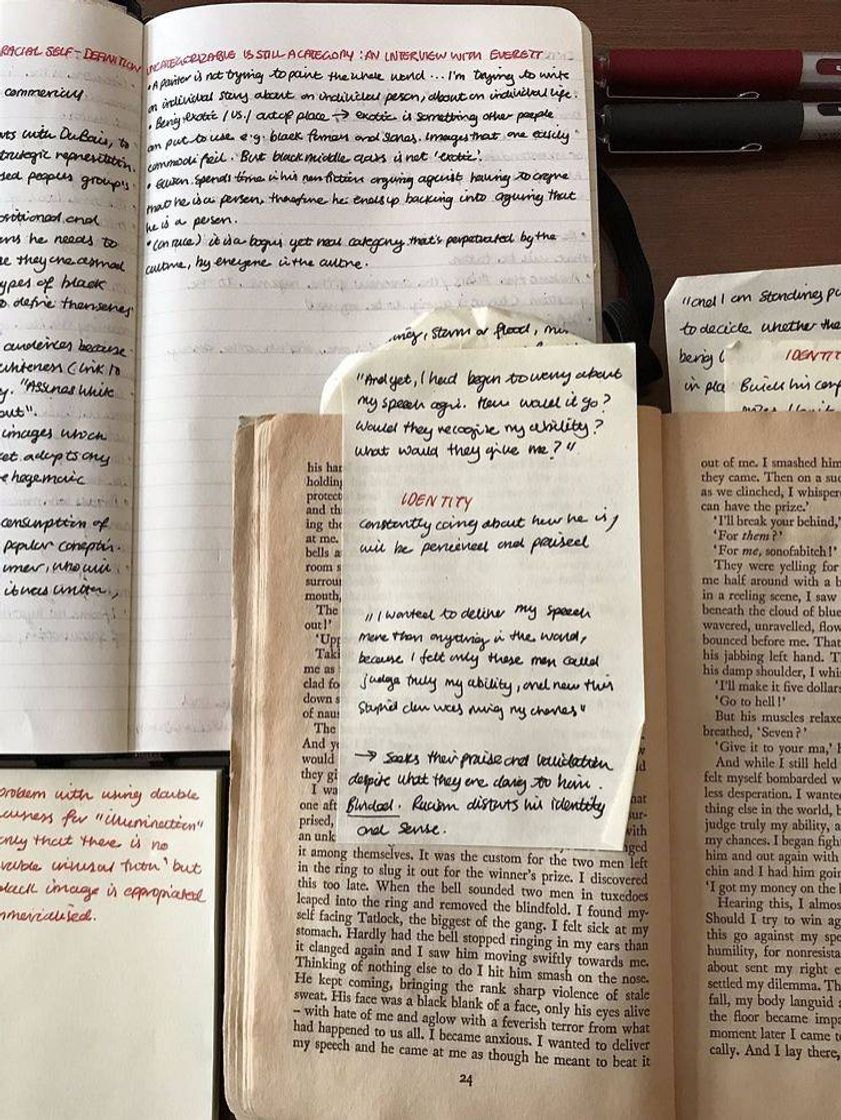 RACIAL SELF-DEFINITION
commercially
ts with DuBois, to
strategic representation.
sed peoples group's
ositional and
ns he needs to
se they are asmal
types of black
to define themselves
audiences because
whiteness (link to
y. "Assumes white
out".
images which
ket adopts any
e hegemonic
consumption of
popular concepti-
umer, who will
it was written,
UNCATEGORIZABLE IS STILL A CATEGORY: AN INTERVIEW WITH EVERETT
• A painter is not trying to paint the whole world... I'm trying to write
an individual story about an individual person, about an individual life.
• Being exotic / us / out of place → exotic is something other people
can put to use e.g. black farmers and slaves. Images that are easily
commodified. But black middle class is not 'exotic'.
• spends time in his non fiction arguing against having to argue
that he is a person, therefore he ends up backing into arguing that
he is a person.
• (on race) it is a bogus yet real category that's perpetuated by the
culture, by everyone in the culture.
problem with using double
ousness for "illumination"
only that there is no
truth' but
black image is appropriated
mmercialised.
storm or flood,
"And yet, I had begun to worry about
my speech again. How would it go?
Would they recognise my ability?
What would they give me?"
IDENTITY
constantly caring about how he is/
will be perceived and praised
"I wanted to deliver my speech
more than anything in the world,
because I felt only these men could
judge truly my ability, and now this
stupid clown was ruining my chances"
→ Seeks their praise and validation
despite what they are doing to him.
Blinded. Racism distorts his identity
and sense.
"and I am standing pu
to decide whether the
being
in pla
IDENTIT
his
his han
holding
protect
and th
ing the
at me.
bells a
room s
surrou
mouth,
The
out!'
'Upp
Taki
me as
clad fo
down s
of naus
The
And ye
would
they gi
I wa
one aft
prised,
an unk
hat
sur-
with
nged
it among themselves. It was the custom for the two men left
in the ring to slug it out for the winner's prize. I discovered
this too late. When the bell sounded two men in tuxedoes
leaped into the ring and removed the blindfold. I found my-
self facing Tatlock, the biggest of the gang. I felt sick at my
stomach. Hardly had the bell stopped ringing in my ears than
it clanged again and I saw him moving swiftly towards me.
Thinking of nothing else to do I hit him smash on the nose.
He kept coming, bringing the rank sharp violence of stale
sweat. His face was a black blank of a face, only his eyes alive
– with hate of me and aglow with a feverish terror from what
had happened to us all. I became anxious. I wanted to deliver
my speech and he came at me as though he meant to beat it
24
out of me. I smashed him
they came. Then on a sud
as we clinched, I whispere
can have the prize.'
'I'll break your behind,'
'For them?'
'For me, sonofabitch!'
They were yelling for
me half around with a b
in a reeling scene, I saw
beneath the cloud of blue
wavered, unravelled, flow
bounced before me. That
his jabbing left hand. T
his damp shoulder, I whis
'I'll make it five dollars
'Go to hell!'
But his muscles relaxe
breathed, 'Seven?'
'Give it to your ma,' h
And while I still held
felt myself bombarded w
less desperation. I wanted
thing else in the world, b
judge truly my ability, a
my chances. I began figh
him and out again with
chin and I had him goin
'I got my money on the b
Hearing this, I almos
Should I try to win ag
this go against my spe
humility, for nonresista
about sent my right e
settled my dilemma. Th
fall, my body languid a
the floor became impa
moment later I came to
cally. And I lay there,